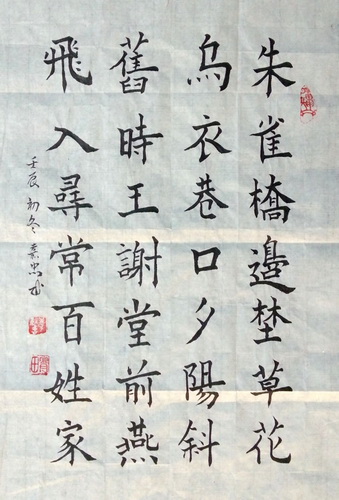 朱雀橋邊埜草花
烏衣巷口夕陽斜
舊時王謝堂前燕
飛入尋常百姓家
壬辰初冬